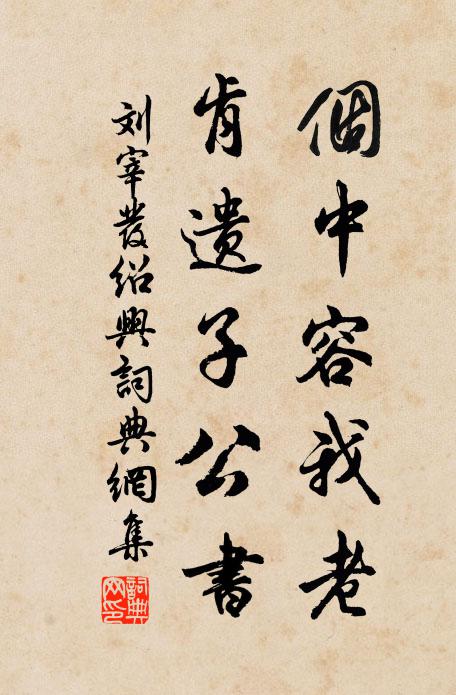 個中容我老
肯遺子公書
刘宰發紹興詞典網集
詞典網印